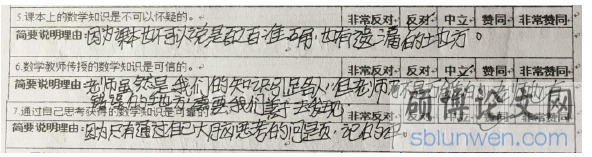 5.课本上的数学知识是不可以怀疑的。 非常反对 反对 中立 赞同 非常赞同
简要说明理由:因为课本也不可以说是百分百准确,也有遗漏的地方。
6.数学教师传授的数学知识是可信的。 非常反对 反对 中立 赞同 非常赞同
简要说明理由:老师虽然是我们的知识引路人,但老师
错误的地方,需要我们善于去发现。
7.通过自己思考获得的数学知识是可靠的 非常反对 反对 中立 赞同 非常赞同
简要说明理由:因为只有通过自己大脑思考的问题,记的
硕博论文网
sblunwen.com